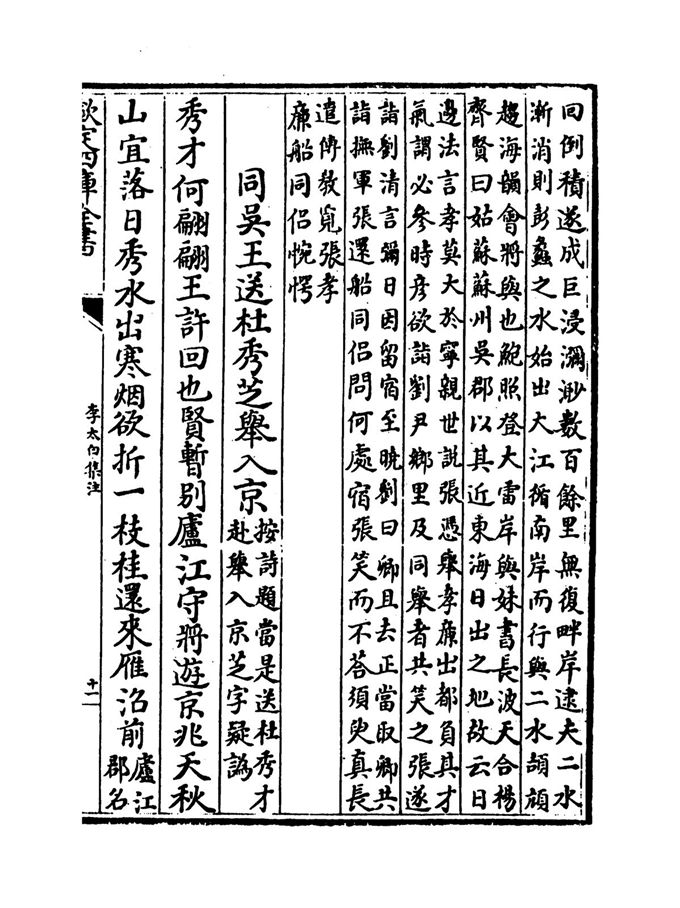 囘例積遂成巨浸瀰渺數百餘里無復畔岸逮夫二水
漸消則彭蠡之水始出大江循南岸而行與二水頡頏
趨海韻會將與也鮑照登大雷岸與妹書長波天合楊
齊賢曰姑蘇蘇州吳郡以其近東海日出之地故云日
邊法言孝莫大於寧親世説張憑舉孝廉出都負其才
氣謂必參時彦欲詣劉尹鄉里及同舉者共笑之張遂
詣劉清言彌日因留宿至曉劉曰卿且去正當取卿共
詣撫軍張還船同侶問何處宿張笑而不荅須臾真長
遣傳教覓張孝
廉船同侶惋愕
同吳王送杜秀芝舉入京
按詩題當是送杜秀才
赴舉入京芝字疑譌
秀才何翩翩王許回也賢暫别廬江守將遊京兆天秋
山宜落日秀水出寒烟欲折一枝桂還來雁沼前
廬江
郡名
欽定四庫全書
李太白集注
十一